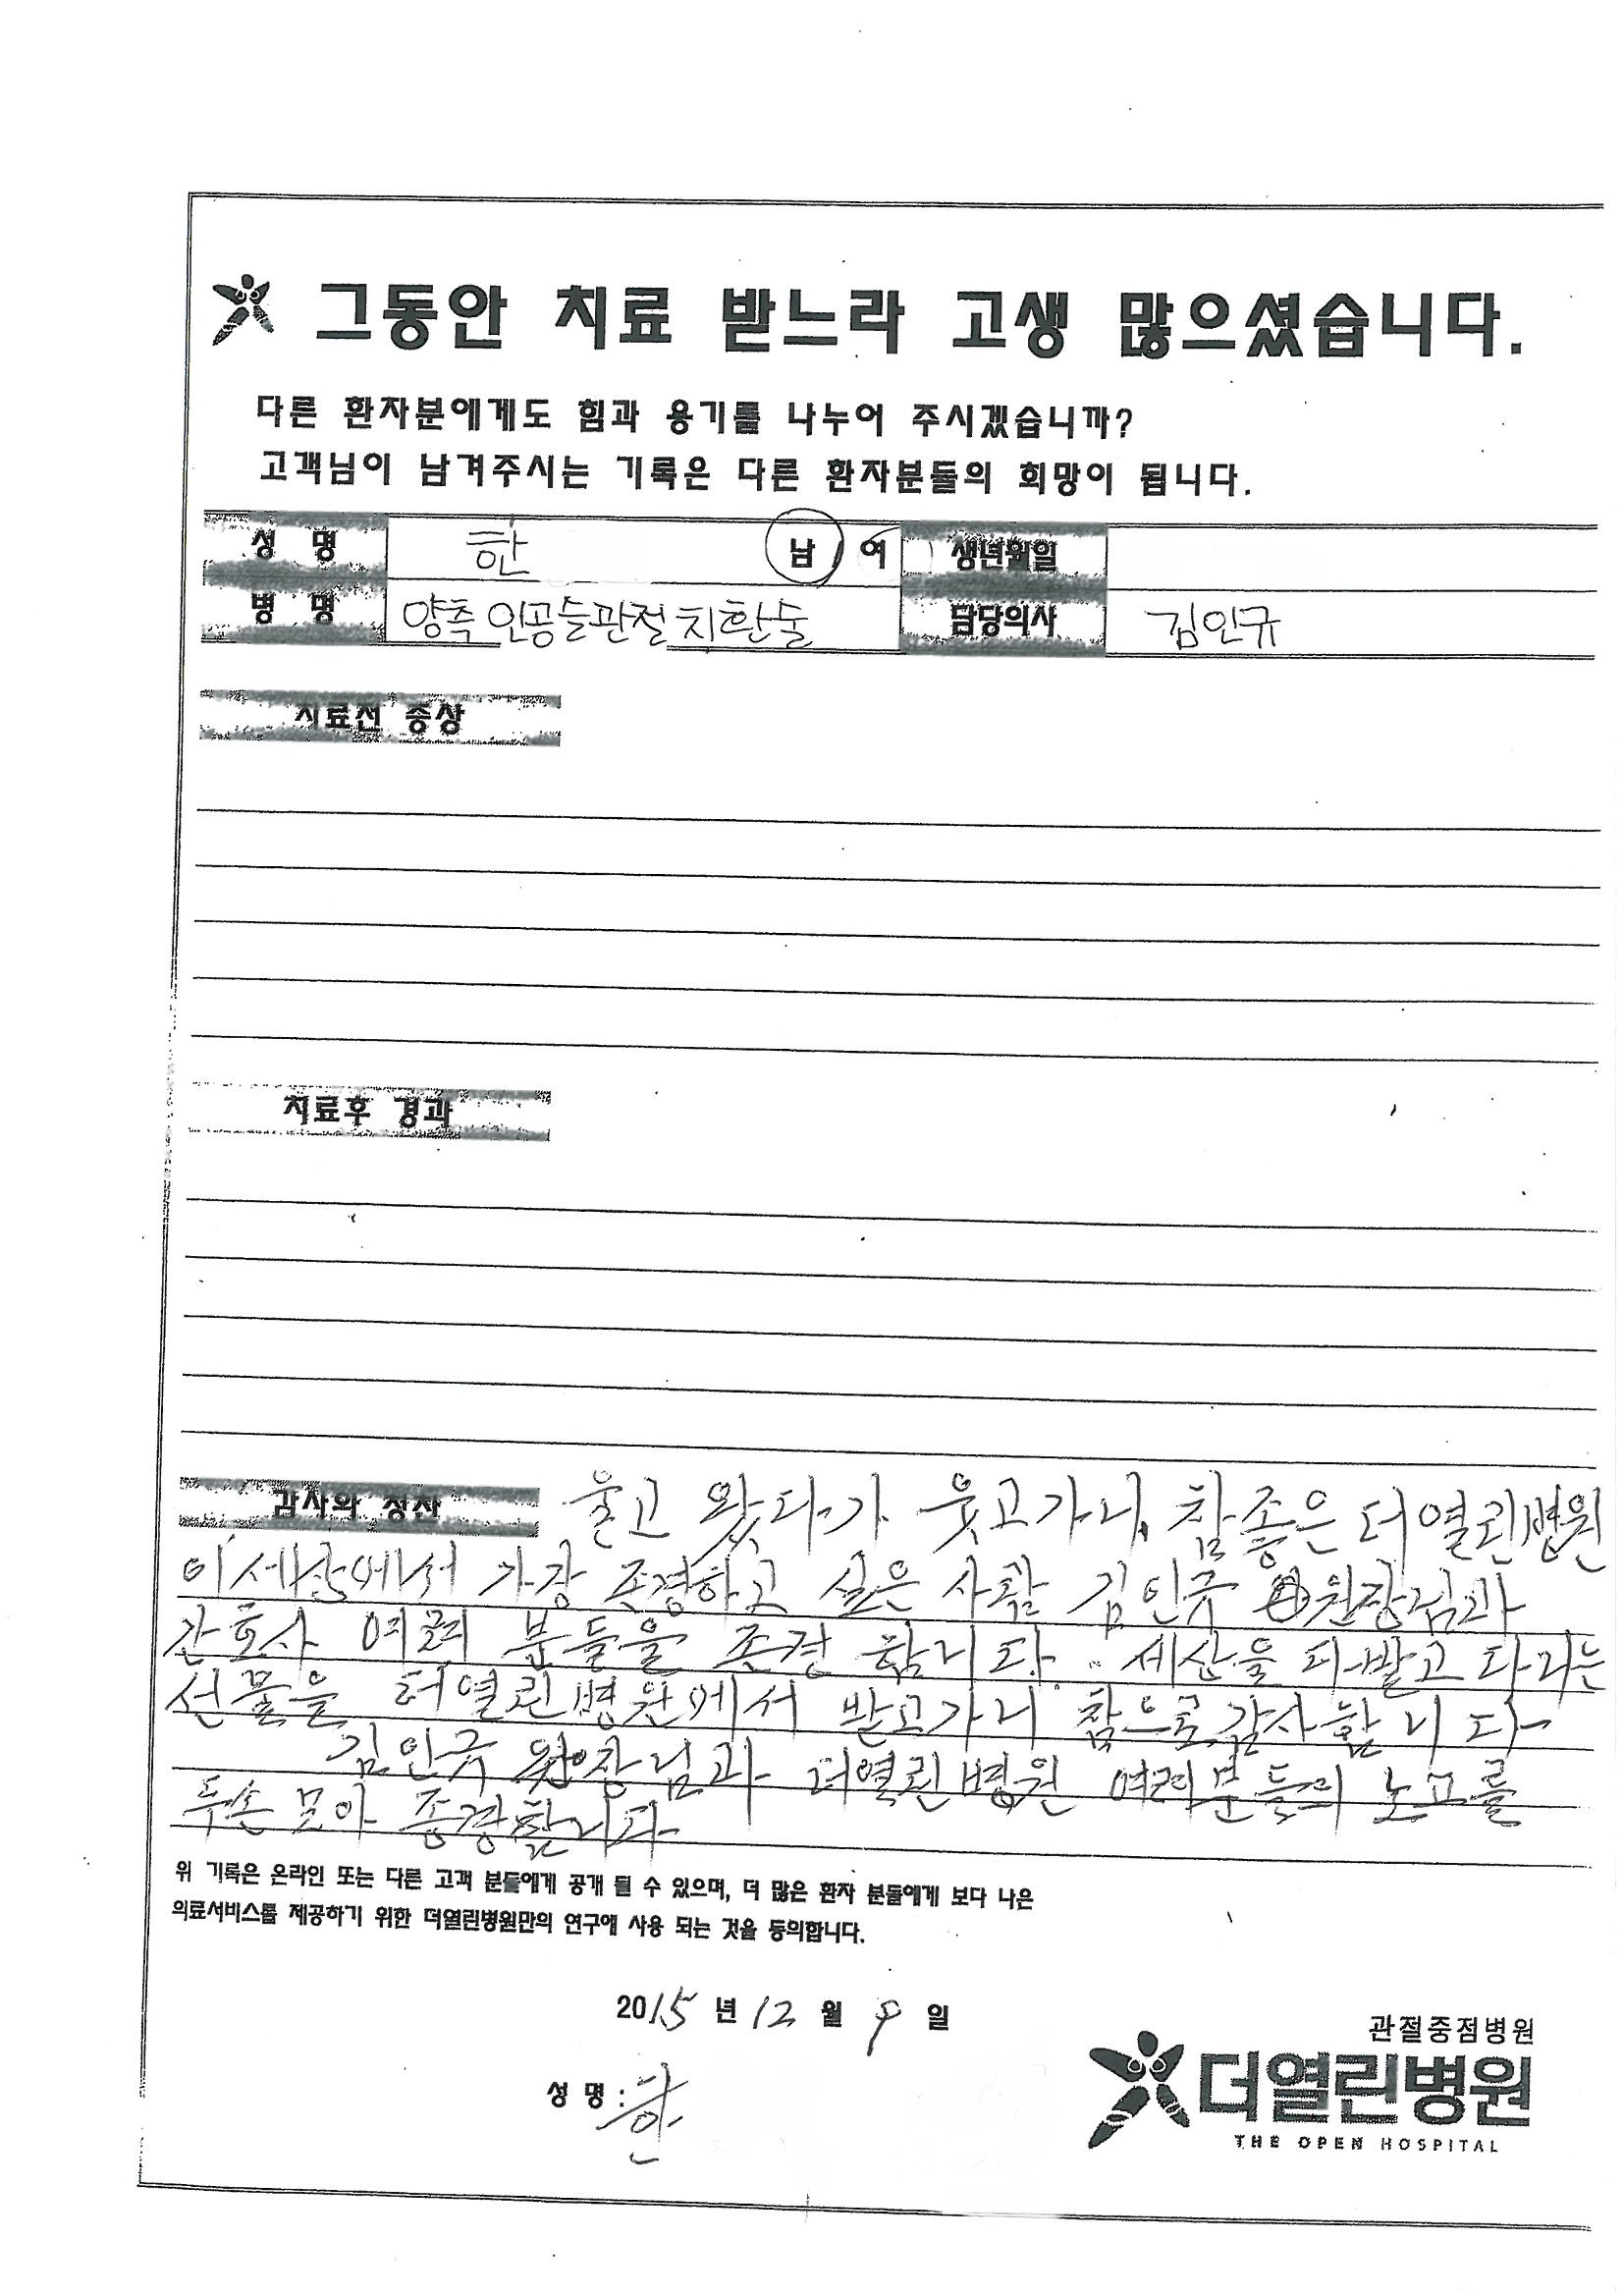 그동안 치료 받느라 고생 많으셨습니다.
다른 환자분에게도 힘과 용기를 나누어 주시겠습니까?
고객님이 남겨주시는 기록은 다른 환자분들의 희망이 됩니다.
성 명 한 남 여 생년월일
병 명 양측 인공슬관절 치환술 담당의사 김인규
치료전 증상
치료후 경과
감사와 칭찬 울고 왔다가 웃고가니, 참좋은 더열린병원
이세상에서 가장 존경하고 싶은 사람 김인규 원장님과
간호사 여러 분들을 존경 합니다. 세산을 다받고 다리는
선물을 더열린병원에서 받고가니 참으로 감사합니다
김인규 원장님과 더열린병원 여러분들의 노고를
두손 모아 종경합니다
위 기록은 온라인 또는 다른 고객 분들에게 공개 될 수 있으며, 더 많은 환자 분들에게 보다 나은
의료서비스를 제공하기 위한 더열린병원만의 연구에 사용 되는 것을 동의합니다.
2015 년 12 월 9 일
성 명 : 한
관절중점병원
더열린병원
THE OPEN HOSPITAL